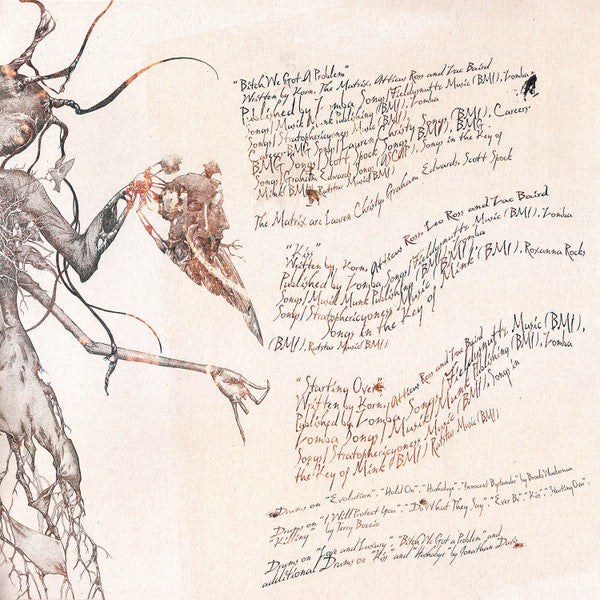 "Bitch We Got A Problem"
Written by Korn, The Matrix, Atticus Ross and Zac Baird
Published by Zomba Songs/Fieldysnuttz Music (BMI), Zomba
Songs/Musik Munk Publishing (BMI), Zomba
Songs/Stratosphericyoness Music (BMI),
Careers-BMG Songs/Lauren Christy Songs (BMI), Careers-
BMG Songs/Scott Spock Songs (BMI), BMG
Songs/Graham Edwards Songs (ASCAP), Songs in the Key of
Mink (BMI), Ratstar Music (BMI)
The Matrix are Lauren Christy, Graham Edwards, Scott Spock
"Kiss"
Written by Korn, Atticus Ross, Leo Ross and Zac Baird
Published by Zomba Songs/Fieldysnuttz Music (BMI), Zomba
Songs/Musik Munk Publishing (BMI), Zomba
Songs/Stratosphericyoness Music (BMI), Roxanna Rocks
Songs in the Key of Mink
(BMI), Ratstar Music (BMI)
"Starting Over"
Written by Korn, Atticus Ross and Zac Baird
Published by Zomba Songs/Fieldysnuttz Music (BMI),
Zomba Songs/Musik Munk Publishing (BMI), Zomba
Songs/Stratosphericyoness Music (BMI), Songs in
the Key of Mink (BMI) Ratstar Music (BMI)
Drums on "Evolution", "Hold On", "Hushabye", "Innocent Bystander" by Brooks Wackerman
Drums on "I Will Protect You", "Do What They Say", "Ever Be", "Kiss", "Starting Over",
"Killing" by Terry Bozzio
Drums on "Love and Luxury", "Bitch We Got a Problem" and
additional Drums on "Kiss" and "Hushabye" by Jonathan Davis